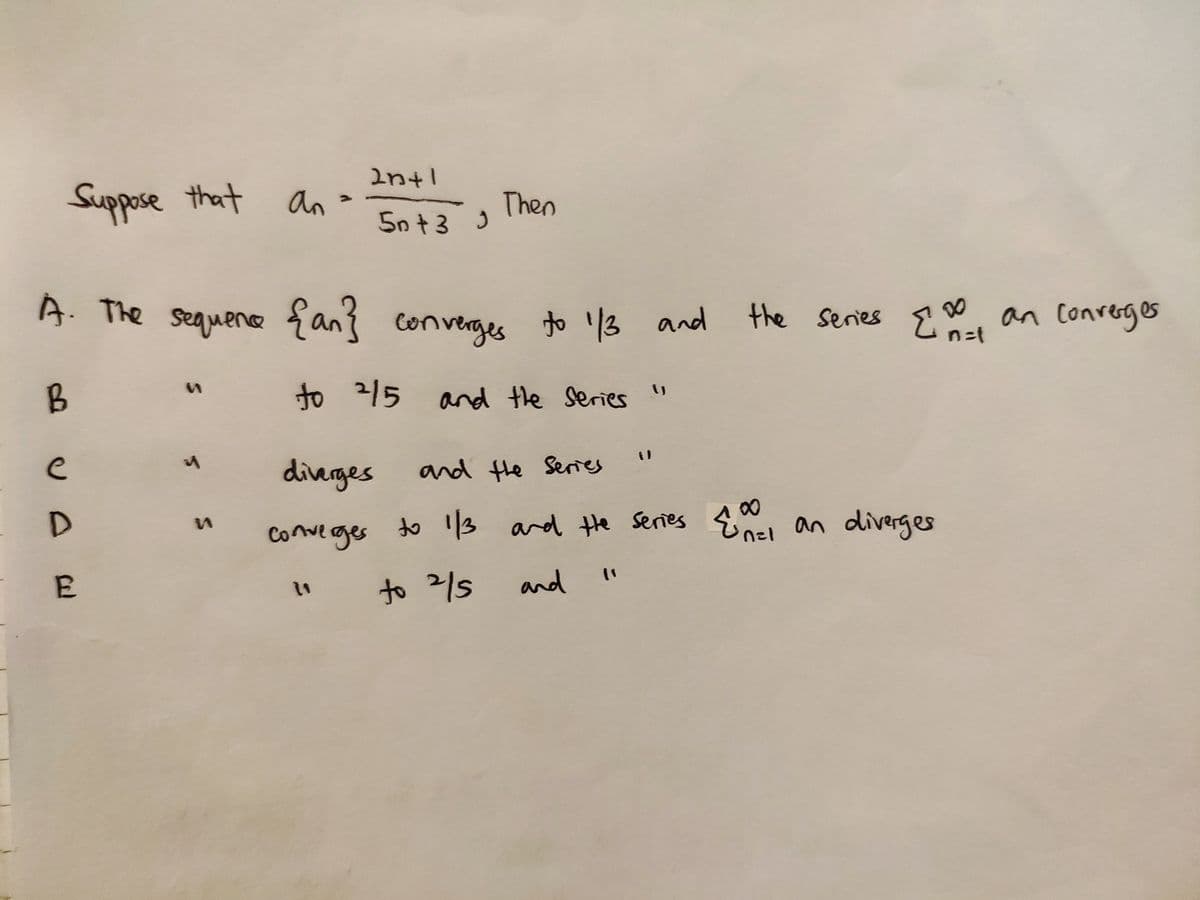 Suppose that an = 2n+1 / 5n+3 , Then
A. The sequence {an} converges to 1/3 and the series Σ∞n=1 an converges
B " to 2/5 and the series "
C " diverges and the series "
D " converges to 1/3 and the series Σ∞n=1 an diverges
E " to 2/5 and "